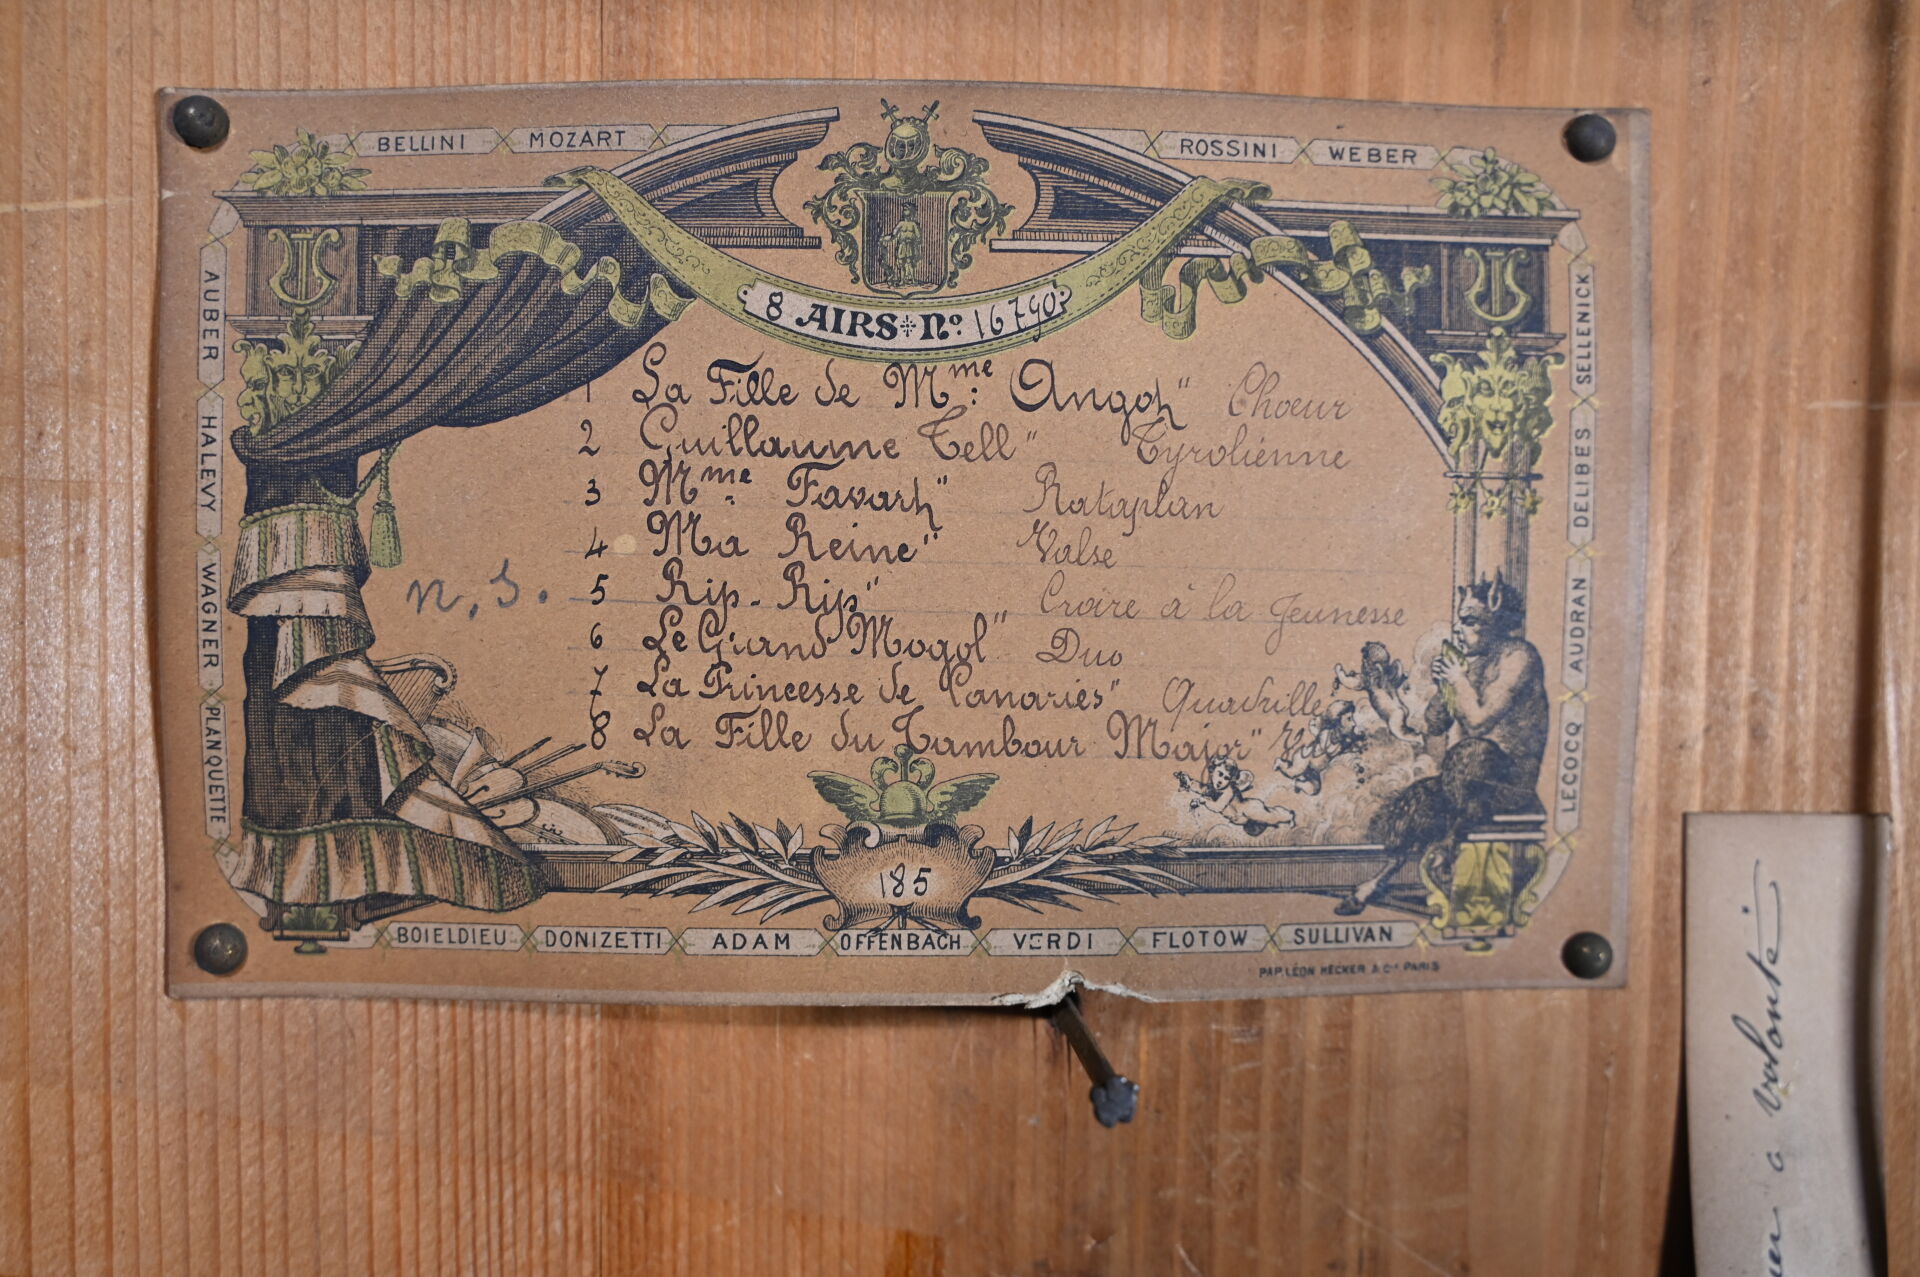 BELLINI MOZART ROSSINI WEBER
AUBER HALEVY WAGNER PLANQUETTE
8 AIRS Nº 16790
1 La Fille de Mme: Angot" Chœur
2 Guillaume Tell" Tyrolienne
3 Mme Favart" Rataplan
4 Ma Reine" Valse
n. S. 5 Rip-Rip" Croire à la Jeunesse
6 Le Grand Mogol" Duo
7 La Princesse de Canaries" Quadrille
8 La Fille du Tambour Major"
SELLENICK DELIBES AUDRAN LECOCQ
185
BOIELDIEU DONIZETTI ADAM OFFENBACH VERDI FLOTOW SULLIVAN
PAP. LÉON HECKER & Cie PARIS
à volonté